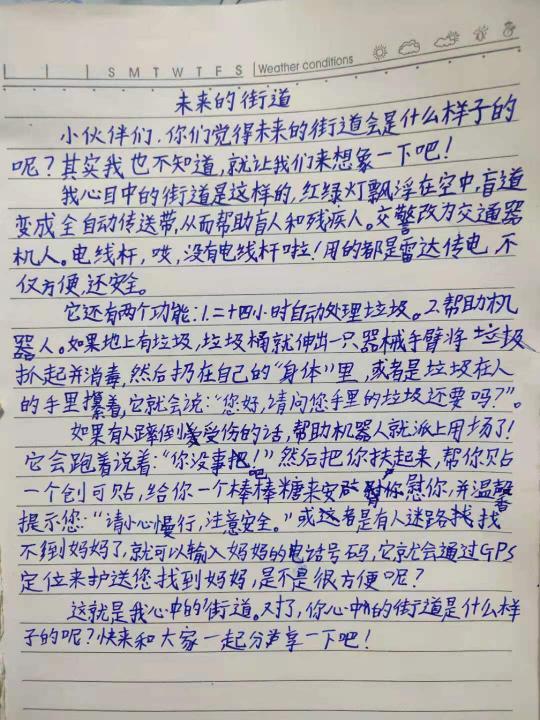 S M T W T F S Weather conditions
未来的街道
小伙伴们，你们觉得未来的街道会是什么样子的
呢？其实我也不知道，就让我们来想象一下吧！
我心目中的街道是这样的，红绿灯飘浮在空中，盲道
变成全自动传送带，从而帮助盲人和残疾人。交警改为交通器
机人。电线杆，哎，没有电线杆啦！用的都是雷达传电，不
仅方便，还安全。
它还有两个功能：1.二十四小时自动处理垃圾。2.帮助机
器人。如果地上有垃圾，垃圾桶就伸出一只器械手臂将垃圾
扒起并消毒，然后扔在自己的“身体”里，或者是垃圾在人
的手里攥着，它就会说：“您好，请问您手里的垃圾还要吗？”。
如果有人蹿倒受伤的话，帮助机器人就派上用场了！
它会跑着说着：“你没事吧！”然后把你扶起来，帮你贴
一个创可贴，给你一个棒棒糖来安慰你，并温馨
提示您：“请小心慢行，注意安全。”或者是有人迷路找
不到妈妈了，就可以输入妈妈的电话号码，它就会通过GPS
定位来护送您找到妈妈，是不是很方便呢？
这就是我心中的街道。对了，你心中的街道是什么样
子的呢？快来和大家一起分享一下吧！